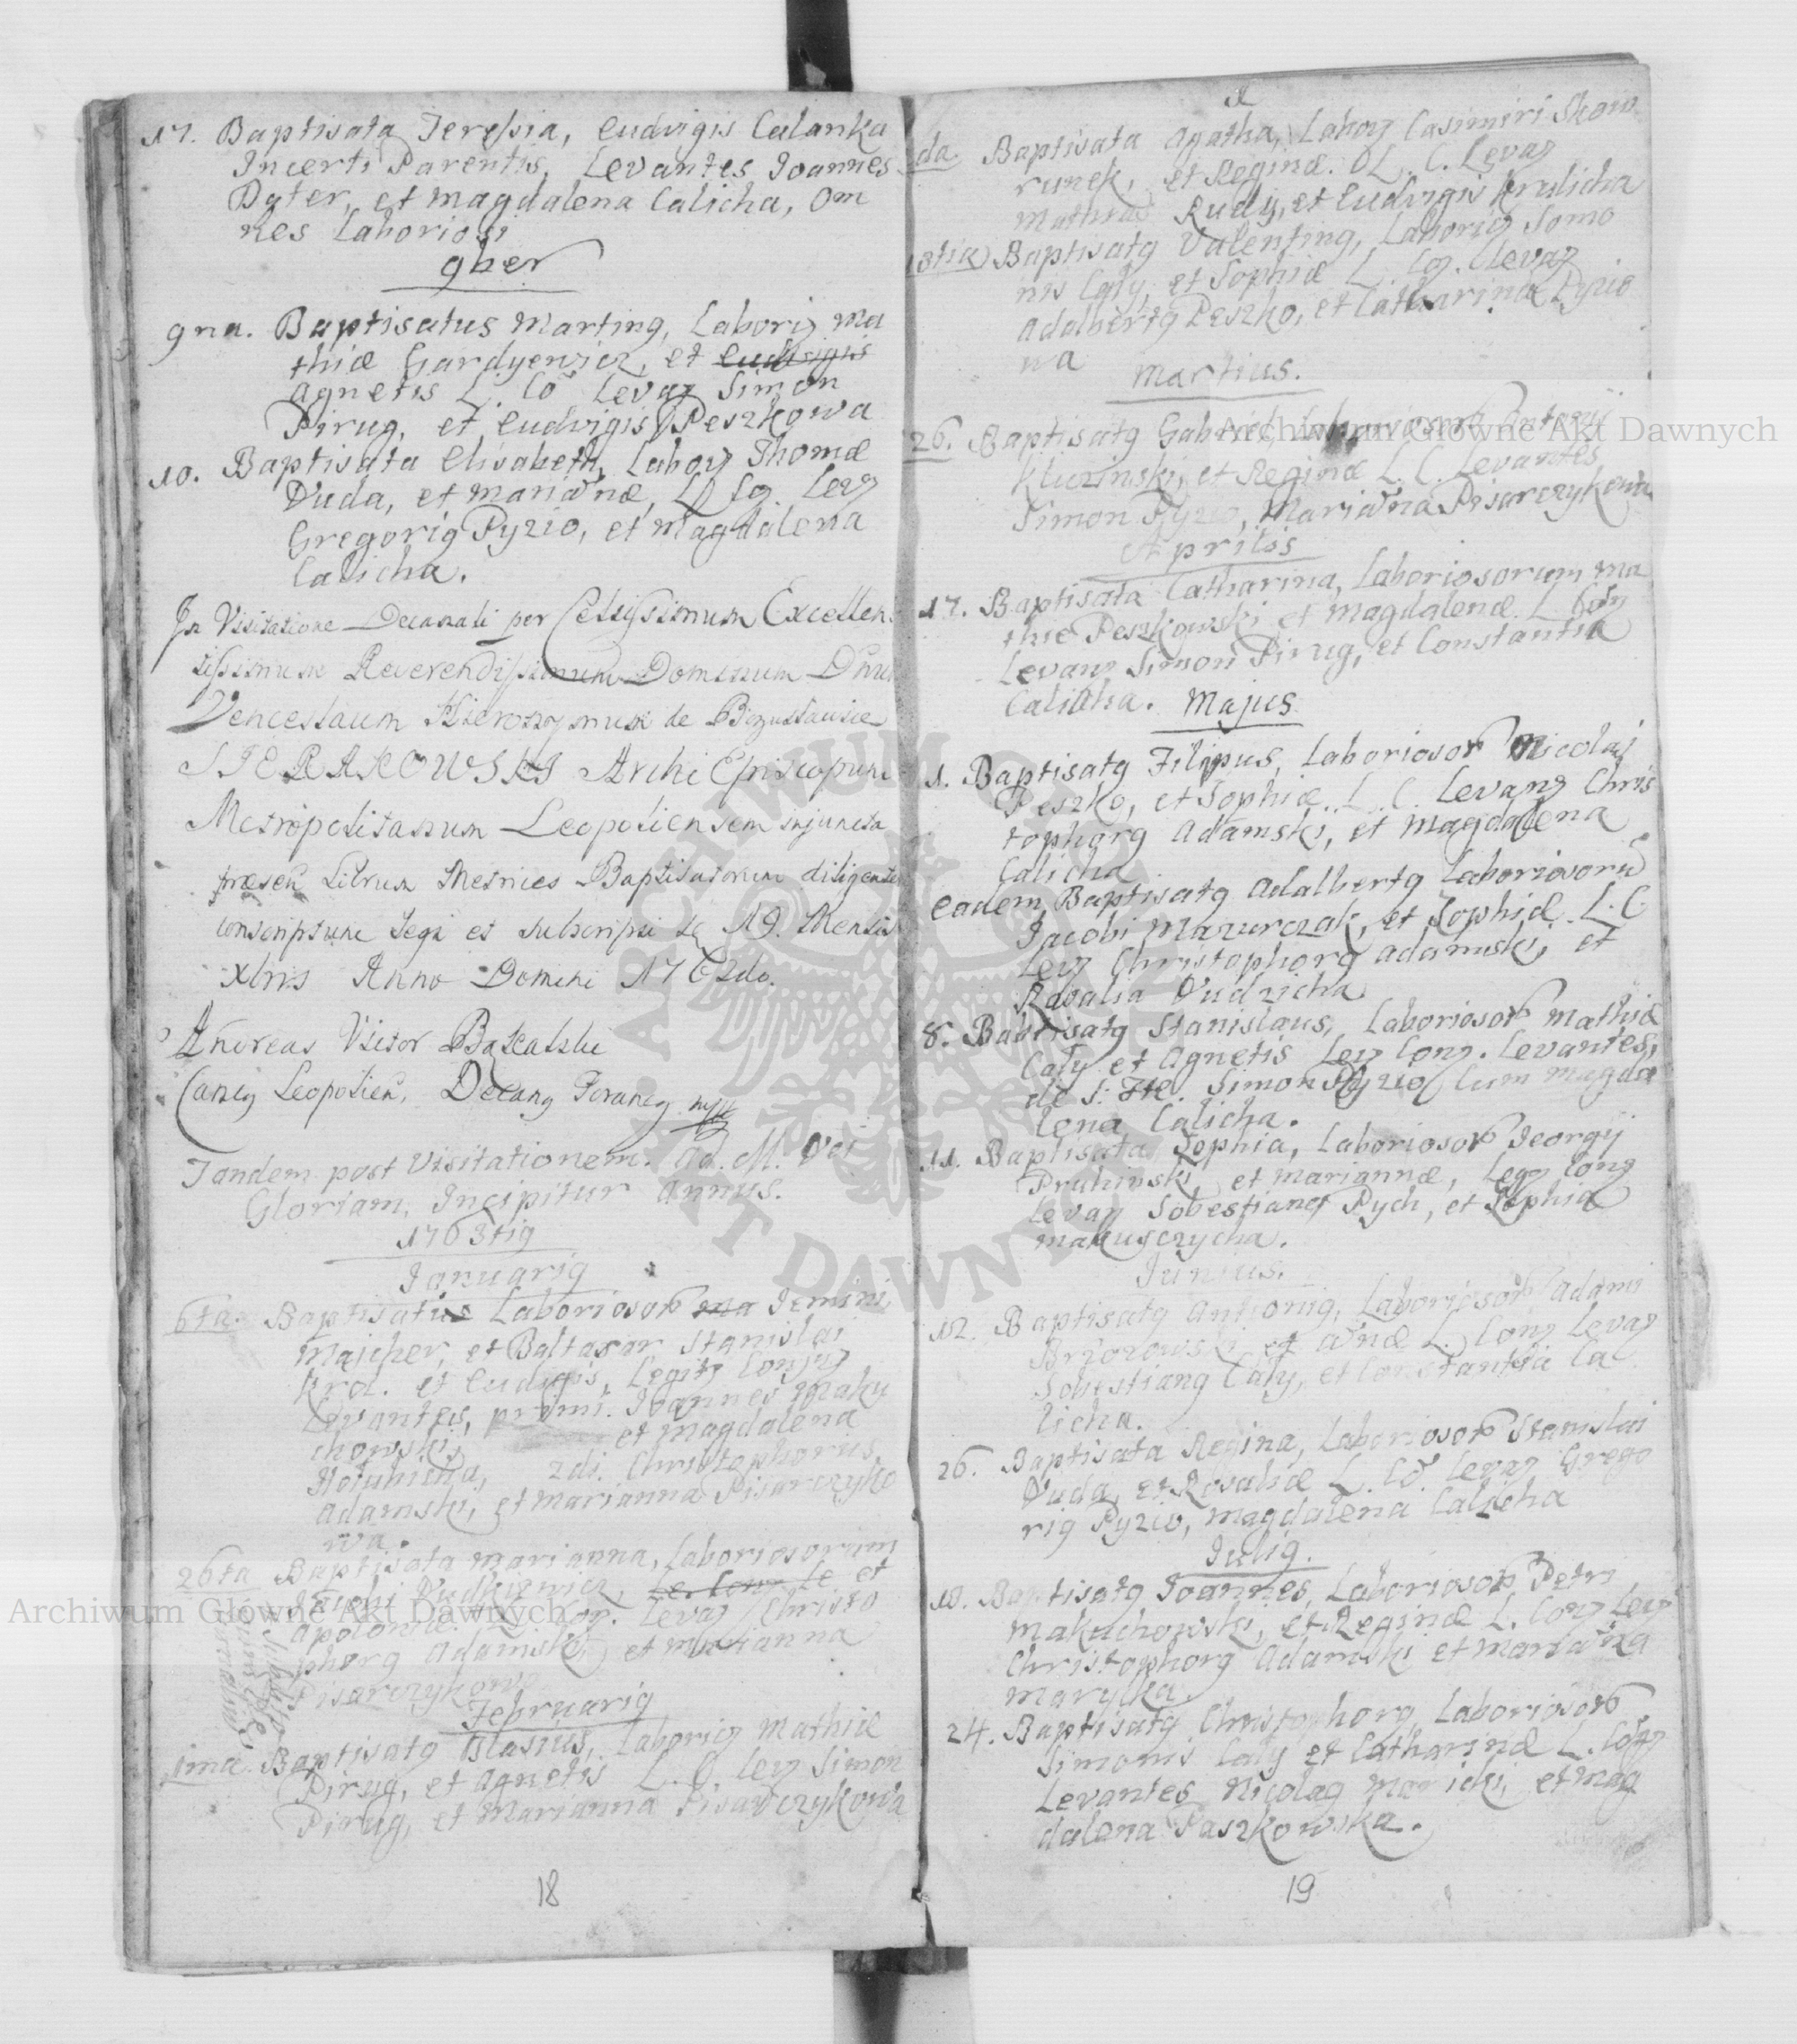 17. Baptisata Teresia, Eudvigis Calanka
Incerti Parentis, Levantes Joannes
Dyter, et Magdalena Calicha, Om
nes Laboriosi
9ber
9na. Baptisatus Marting, Laborig Ma
thiæ Gardyewicz, et Eudvigis
Agnetis L. Co Levaz Simon
Pirug, et Eudvigis Peszkowa
10. Baptisata Elisabeth, Laboz Thomæ
Duda, et Mariañæ, L. Cg. Levz
Gregorig Pyzio, et Magdalena
Calicha.
In Visitatione Decanali per Celsissimum Excellen
tissimum Reverendissimum Dominum Dnum
Venceslaum Hieronymum de Boguslavice
SIERAKOWSKI Archi Episcopum
Metropolitanum Leopoliensem injuncta
præsen Librum Metrices Baptisatorum diligenter
conscriptum legi et subscripsi die 19. Mensis
Xbris Anno Domini 1762do.
Andreas Visor
Cancg Leopolien, Decang Foraneg mpp
Tandem post Visitationem. Ad. M. Dei
Gloriam, Incipitur Annus.
1763tig
Januarig
6ta. Baptisatus Laboriosor ma Gemini,
Majcher, et Baltasar Stanislai
Krol. et Eudvigis, Legitz Conjug
Levantes, primi. Joannes Maku
chowski, et Magdalena
Hotubicha, 2di. Christophorus
Adamski, et Marianna Pisarczyko
wa.
26ta Baptisata Marianna, Laboriosorum
Jacobi Dudkiewicz, et
Apoloniæ Levaz Christo
phorg Adamski, et Marianna
Pisarczykowa
Februarig
1ma. Baptisatg Blasius, Laborig Mathiæ
Pirug, et Agnetis L. C. Levz Simon
Pirug, et Marianna Pisarczykowa
18
da. Baptisata Agatha, Laboz Casimiri Skow
runek, et Reginæ. L. C. Levaz
Mathias Rudy, et Eudvigis Krulicha
Baptisatg Valenting, Laborig Simo
nis Caly, et Sophiæ L. Cg. Levaz
Adalbertg Peszko, et Catharina Pyzio
wa
Martius.
26. Baptisatg Gabriel Laboriosor
Kluzinski, et Reginæ L. C. Levantes
Simon Pyzio, Mariaña Pisarczykowa
Aprilis
17. Baptisata Catharina, Laboriosorum Ma
thiæ Peszkowski et Magdalenæ L. Coñz
Levanz Simon Pirug, et Constantia
Calicha. Majus
1. Baptisatg Filipus, Laboriosor Nicolaj
Peszko, et Sophiæ. L. C. Levanz Chris
tophorg Adamski, et Magdalena
Calicha
Eadem Baptisatg Adalbertg Laboriosorū
Jacobi Mazurczak, et Sophiæ L. C
Levz Christophorg Adamski, et
Rosalia Dudzicha
8. Babtisatg Stanislaus, Laboriosor Mathiæ
Caly et Agnetis Leg Conz. Levantes,
de S: Fte. Simon Pyzio Cum Magda
lena Calicha.
11. Baptisata Sophia, Laboriosor Georgij
Pruhinski et Mariannæ, Legz Conz
Levaz Sobestiang Pych, et Sophia
Makusczycha.
Junius.
12. Baptisatg Antonig, Laboriosor Adami
Brzozowski et Añnæ L. Conz Levaz
Sobestiang Caly, et Constantia Ca
licha.
26. Baptisata Regina, Laboriosor Stanislai
Duda, et Rosaliæ L. Cõ. Levaz Grego
rig Pyzio, Magdalena Calicha
Julig.
10. Baptisatg Joannes, Laboriosor Petri
Makuchowski, et Reginæ L. Conz Levz
Christophorg Adamski et Mariaña
Marycka
24. Baptisatg Christophorg Laboriosor
Simonis Caly et Catharinæ L. Coñz
Levantes Nicolag Mowicki, et Mag
dalena Paszkowska.
19
Archiwum Główne Akt Dawnych
Archiwum Główne Akt Dawnych
ARCHIWUM GŁÓWNE AKT DAWNYCH